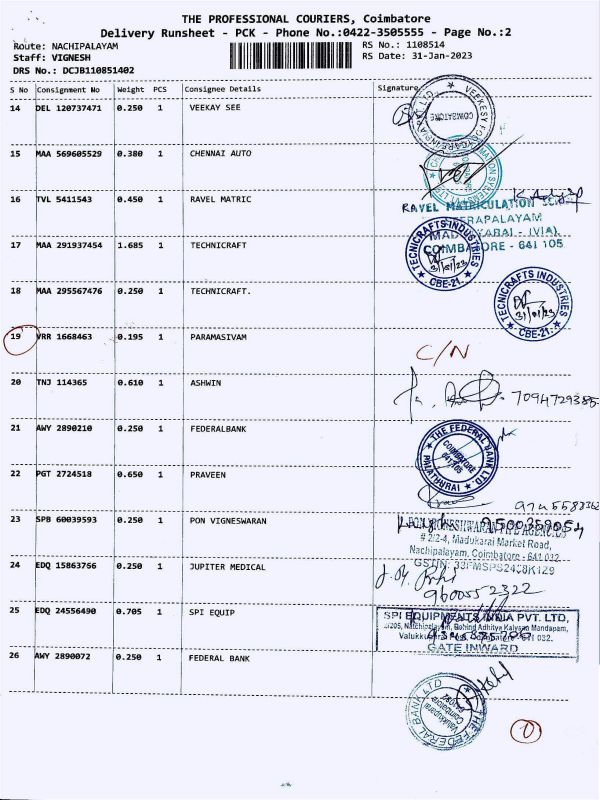 THE PROFESSIONAL COURIERS, Coimbatore
Delivery Runsheet - PCK - Phone No.:0422-3505555 - Page No.:2
Route: NACHIPALAYAM
RS No.: 1108514
Staff: VIGNESH
RS Date: 31-Jan-2023
DRS No.: DCJB110851402
S No Consignment No Weight PCS Consignee Details Signature
14 DEL 120737471 0.250 1 VEEKAY SEE
COIMBATORE
15 MAA 569605529 0.380 1 CHENNAI AUTO
16 TVL 5411543 0.450 1 RAVEL MATRIC
RAVEL MATRICULATION
COIMBATORE - 641 105
17 MAA 291937454 1.685 1 TECHNICRAFT
TECNICRAFTS INDUSTRIES
31/01/23
CBE-21.
18 MAA 295567476 0.250 1 TECHNICRAFT.
TECNICRAFTS INDUSTRIES
31/01/23
CBE-21.
19 VRR 1668463 0.195 1 PARAMASIVAM
C/N
20 TNJ 114365 0.610 1 ASHWIN
7094729385
21 AWY 2890210 0.250 1 FEDERALBANK
THE FEDERAL BANK LTD.
COIMBATORE
641 105
PALATHURAI
22 PGT 2724518 0.650 1 PRAVEEN
23 SPB 60039593 0.250 1 PON VIGNESWARAN
9500359054
# 2/2-4, Madukarai Market Road,
Nachipalayam, Coimbatore - 641 032.
24 EDQ 15863766 0.250 1 JUPITER MEDICAL
9600552322
25 EDQ 24556490 0.705 1 SPI EQUIP
SPI EQUIPMENTS INDIA PVT. LTD,
Behind Adhitya Kalyana Mandapam,
GATE INWARD
26 AWY 2890072 0.250 1 FEDERAL BANK
FEDERAL BANK LTD